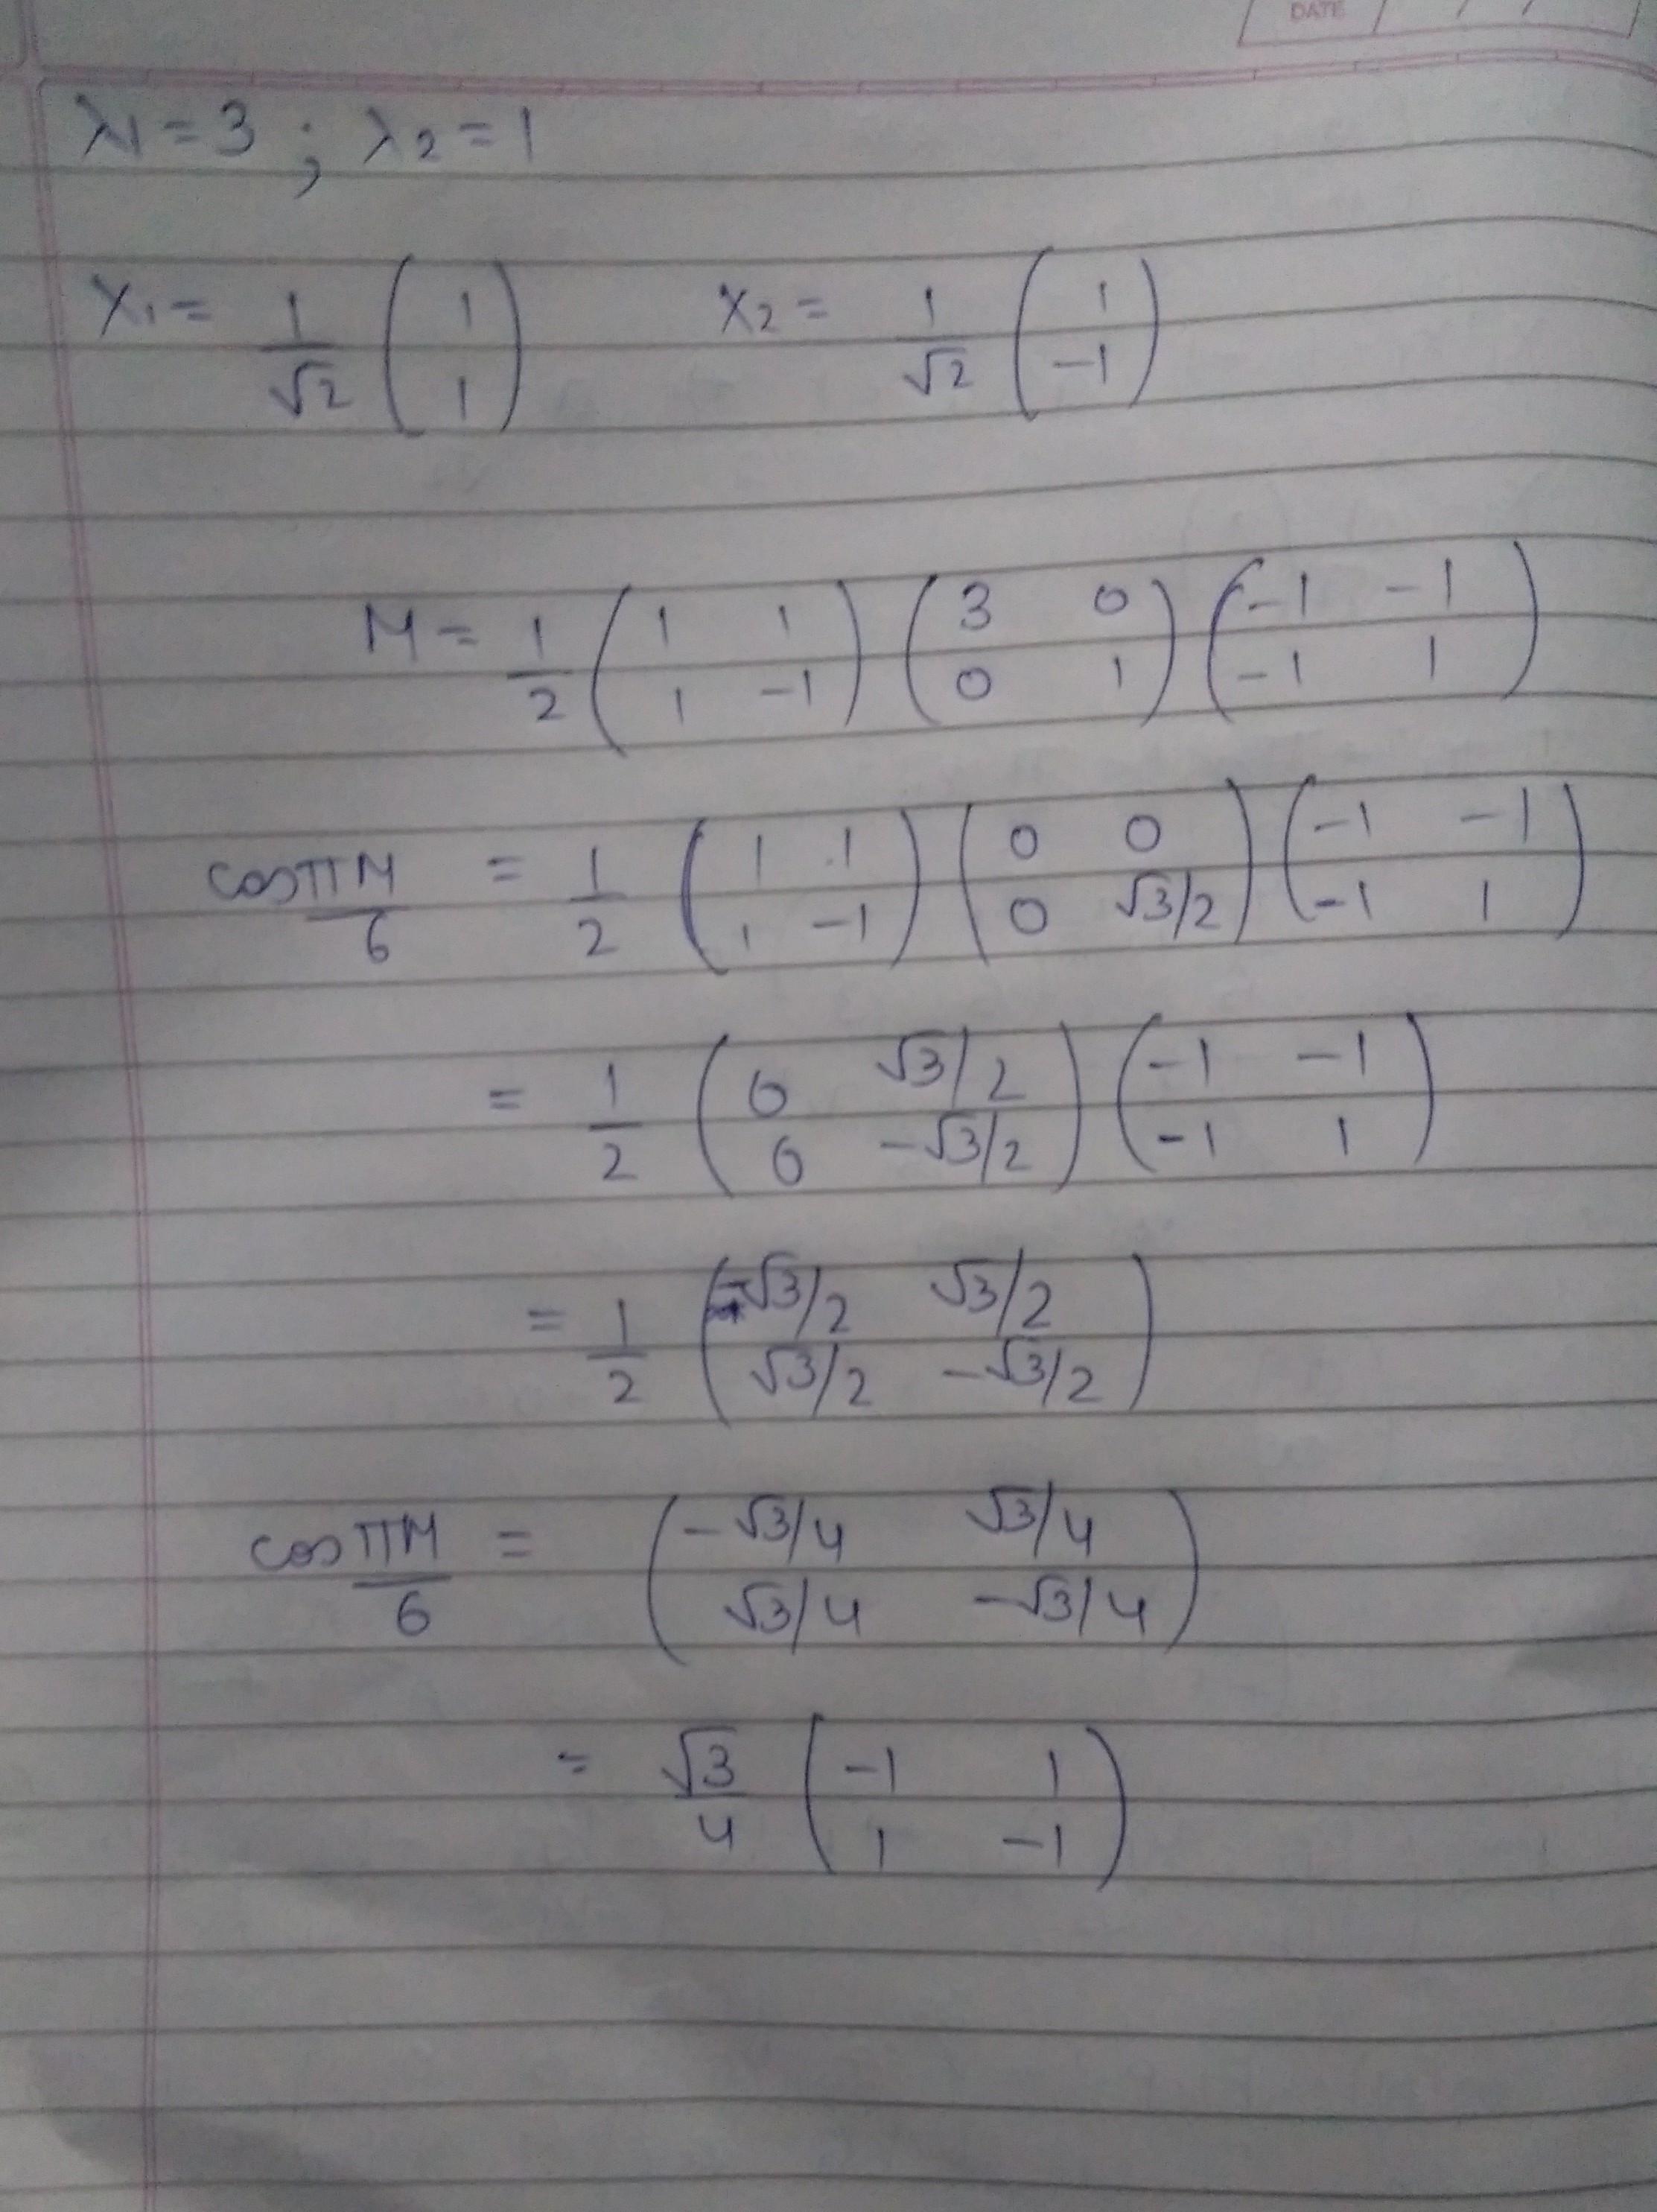 DATE / /
λ1 = 3 ; λ2 = 1
X1 = 1/√2 (1; 1) X2 = 1/√2 (1; -1)
M = 1/2 (1 1; 1 -1) (3 0; 0 1) (-1 -1; -1 1)
cos πM/6 = 1/2 (1 1; 1 -1) (0 0; 0 √3/2) (-1 -1; -1 1)
= 1/2 (0 √3/2; 0 -√3/2) (-1 -1; -1 1)
= 1/2 (-√3/2 √3/2; √3/2 -√3/2)
cos πM/6 = (-√3/4 √3/4; √3/4 -√3/4)
= √3/4 (-1 1; 1 -1)